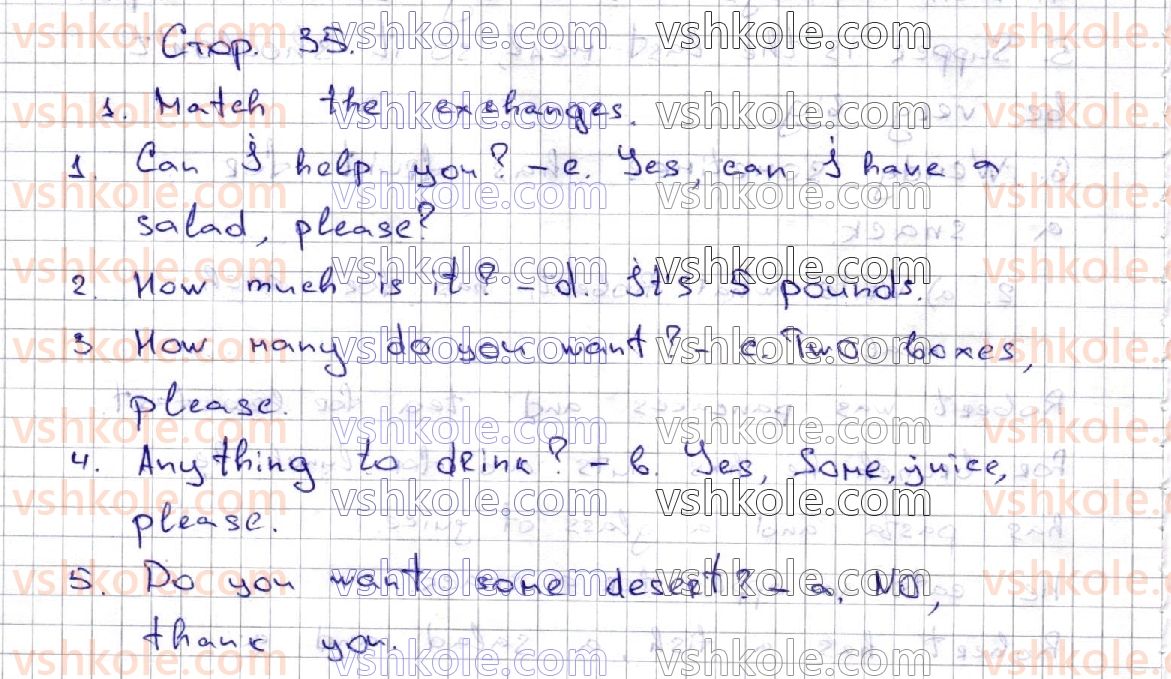 Стор. 35.
1. Match the exchanges.
1. Can I help you? – e. Yes, can I have a
salad, please?
2. How much is it? – d. it's 5 pounds.
3 How many do you want? – c. Two boxes,
please.
4. Anything to drink? – b. Yes, some, juice,
please.
5. Do you want some desert? – a. No,
thank you.
vshkole.com